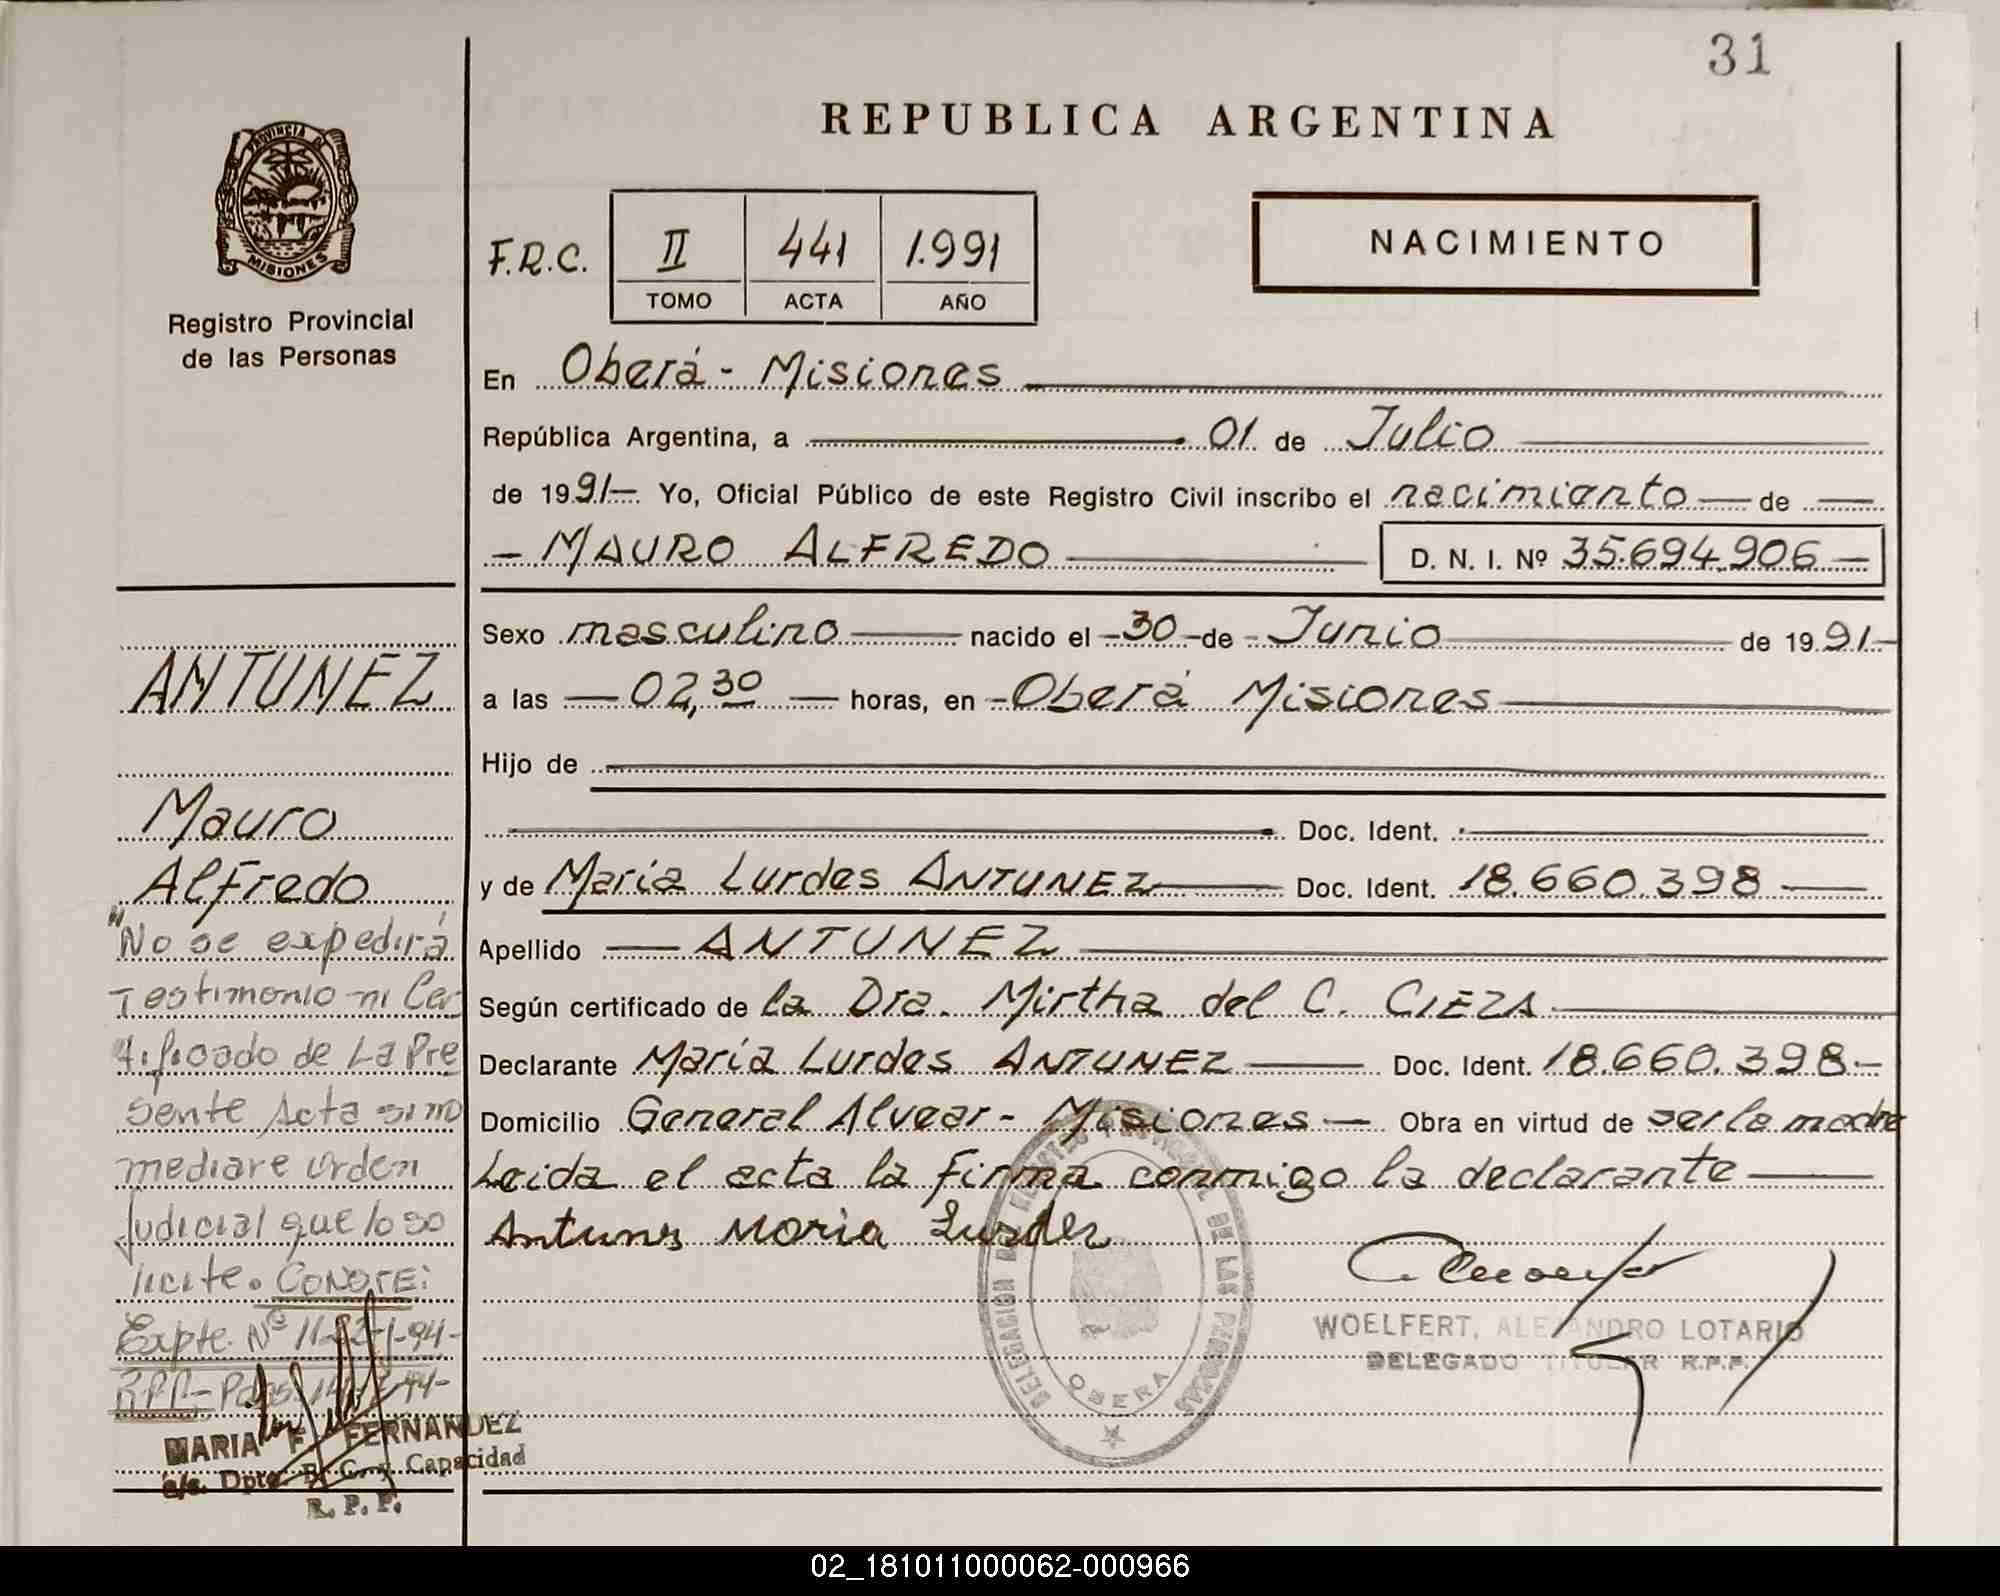 31
REPUBLICA ARGENTINA
PROVINCIA DE
MISIONES
Registro Provincial
de las Personas
F.R.C. II 441 1.991
TOMO ACTA AÑO
NACIMIENTO
En Oberá - Misiones
República Argentina, a 01 de Julio
de 1991 Yo, Oficial Público de este Registro Civil inscribo el nacimiento de
MAURO ALFREDO D. N. I. Nº 35.694.906
Sexo masculino nacido el 30 de Junio de 1991
a las 02,30 horas, en Oberá Misiones
Hijo de
Doc. Ident.
y de María Lurdes ANTUNEZ Doc. Ident. 18.660.398
Apellido ANTUNEZ
Según certificado de la Dra. Mirtha del C. CIEZA
Declarante María Lurdes ANTUNEZ Doc. Ident. 18.660.398
Domicilio General Alvear - Misiones Obra en virtud de ser la madre
Leida el acta la firma conmigo la declarante
Antunes Maria Lurdes
WOELFERT, ALEJANDRO LOTARIO
DELEGADO TITULAR R.P.P.
DELEGACION DE LAS PERSONAS
OBERA
ANTUNEZ
Mauro
Alfredo
"No se expedirá
Testimonio ni Cer
tificado de La Pre
sente Acta si no
mediare orden
Judicial que lo so
licite. CONSTE:
Expte. Nº
R.P.P.
MARIA F. FERNANDEZ
a/c. Dpto. E. C. y Capacidad
R. P. P.
02_181011000062-000966